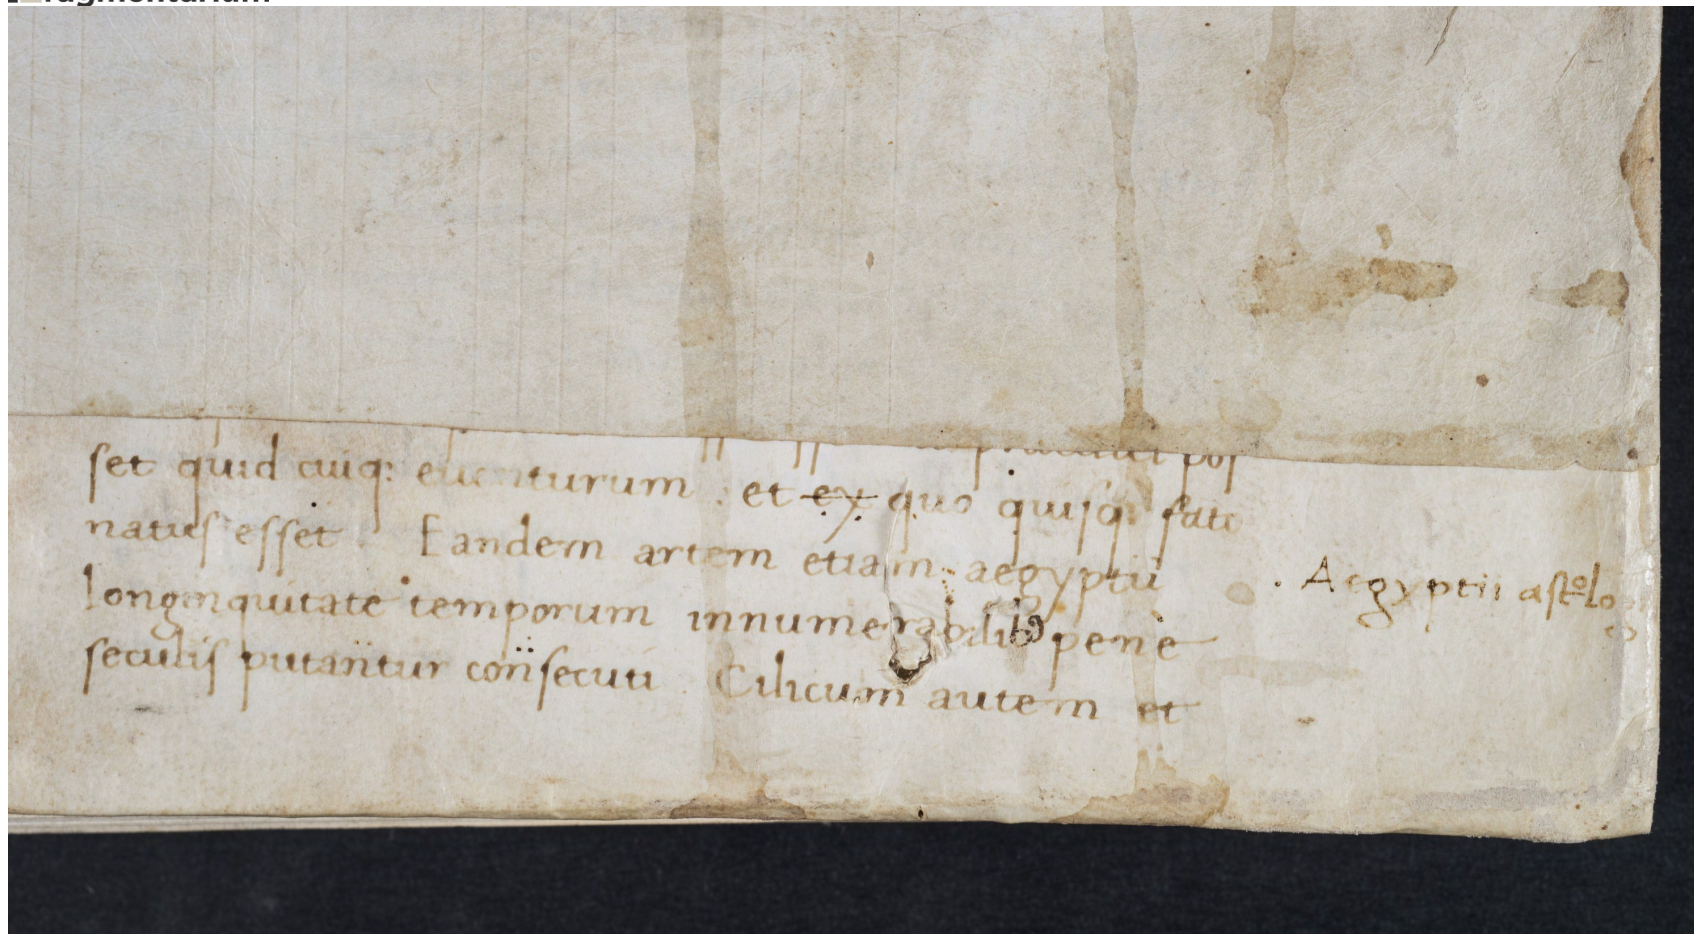 set quid cuiq: euenturum . et ex quo quisq: fato
natus esset . Eandem artem etiam aegyptii
longinquitate temporum innumerabilib; pene
seculis putantur consecuti . Cilicum autem et
. Aegyptii astolog